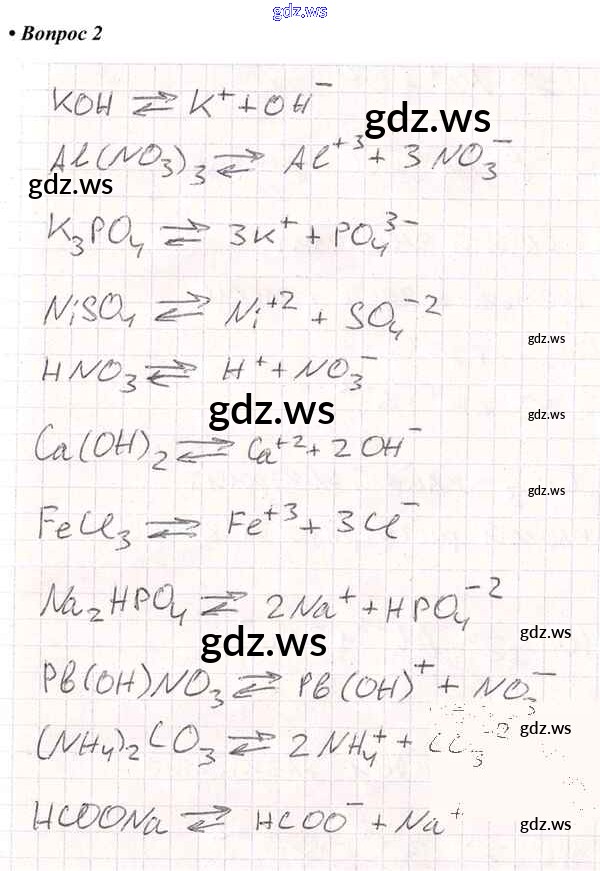 gdz.ws
• Вопрос 2
KOH ⇌ K⁺ + OH⁻
gdz.ws
Al(NO₃)₃ ⇌ Al⁺³ + 3NO₃⁻
gdz.ws
K₃PO₄ ⇌ 3K⁺ + PO₄³⁻
NiSO₄ ⇌ Ni⁺² + SO₄⁻²
gdz.ws
HNO₃ ⇌ H⁺ + NO₃⁻
gdz.ws
gdz.ws
Ca(OH)₂ ⇌ Ca⁺² + 2OH⁻
gdz.ws
FeCl₃ ⇌ Fe⁺³ + 3Cl⁻
Na₂HPO₄ ⇌ 2Na⁺ + HPO₄⁻²
gdz.ws
gdz.ws
Pb(OH)NO₃ ⇌ Pb(OH)⁺ + NO₃⁻
gdz.ws
(NH₄)₂CO₃ ⇌ 2NH₄⁺ + CO₃⁻²
HCOONa ⇌ HCOO⁻ + Na⁺
gdz.ws